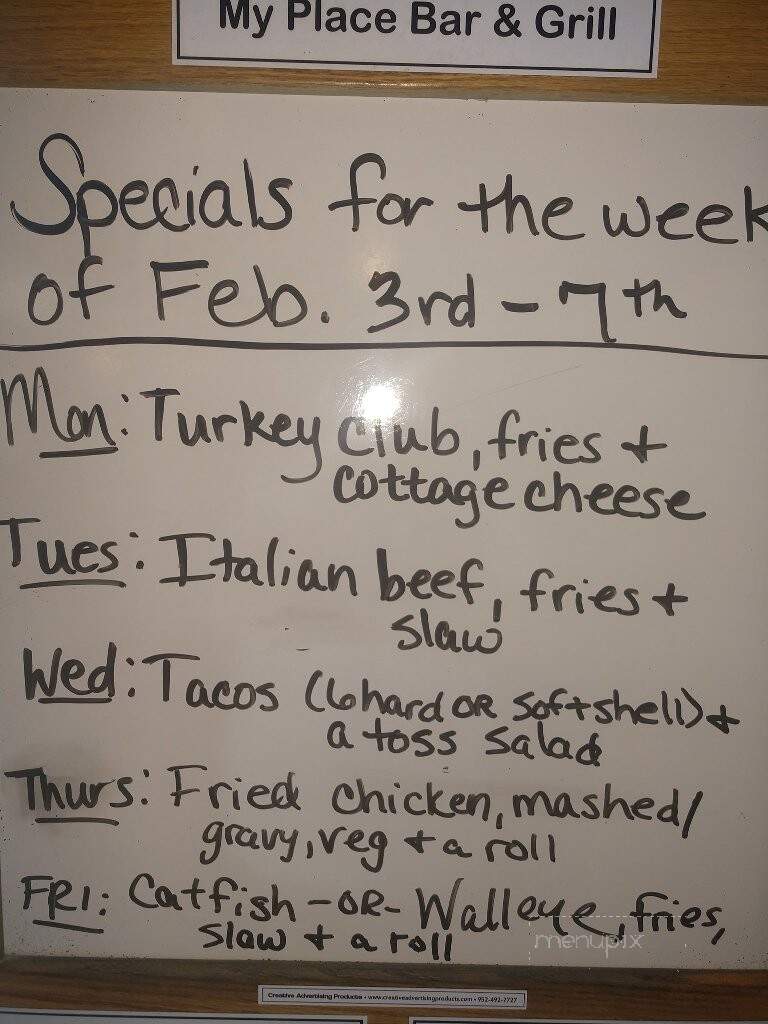 My Place Bar & Grill
Specials for the week
of Feb. 3rd - 7th
Mon: Turkey club, fries +
cottage cheese
Tues: Italian beef, fries +
slaw
Wed: Tacos (6 hard OR soft shell) +
a toss salad
Thurs: Fried chicken, mashed/
gravy, veg + a roll
FRI: Catfish -OR- Walleye, fries,
slaw + a roll
menupix
Creative Advertising Products • www.creativeadvertisingproducts.com • 952-492-7727